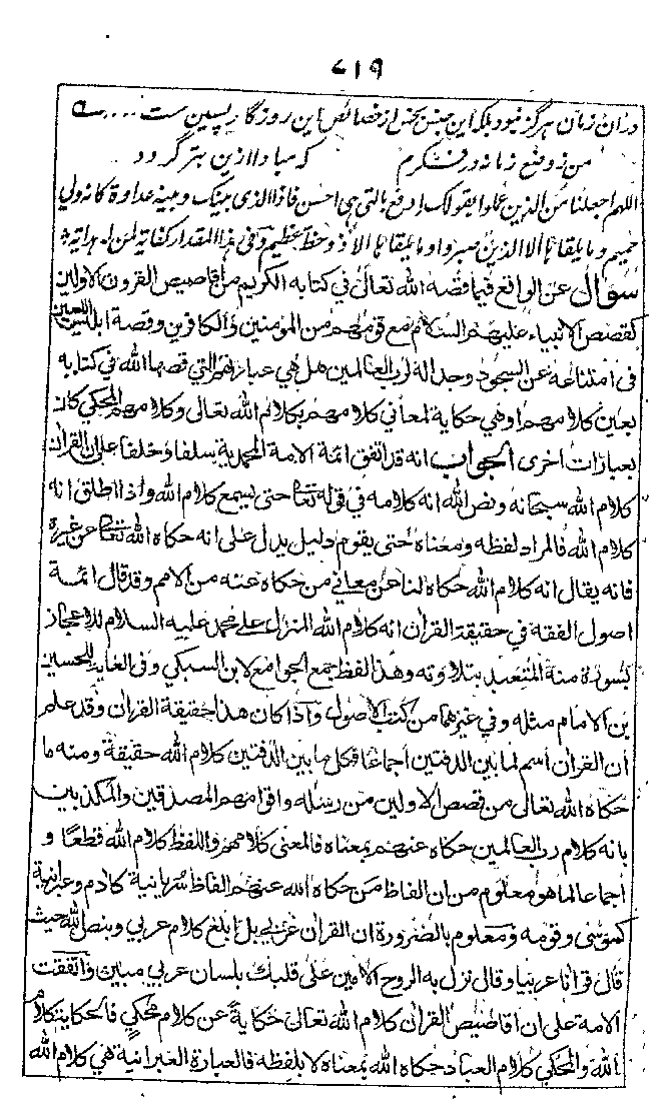 ۷۱۹
دران زمان هرگز نبود بلکه این جنس بخش از خصائص این روزگار پسین ست . . . .
من ز وضع زمانه در فکرم که مبادا ازین بتر گردد
اللهم اجعلنا من الذین عملوا بقولك ادفع بالتی هی احسن فاذا الذی بینك وبینه عداوة كانه ولی
حمیم وما یلقاها الا الذین صبروا وما یلقاها الا ذو حظ عظیم وفی هذا المقدار كفایة لمن له هدایة
سؤال عن الواقع فیما قصه الله تعالى فی كتابه الكریم من اقاصیص القرون الاولین
كقصص الانبیاء علیهم السلام مع قومهم من المؤمنین والكافرین وقصة ابلیس اللعین
فی امتناعه عن السجود وجداله لرب العالمین هل هی عبارتهم التی قصها الله فی كتابه
بعین كلامهم او هی حكایة لمعانی كلامهم بكلام الله تعالى وكلامهم المحكی كان
بعبارات اخرى الجواب انه قد اتفق ائمة الامة المحمدیة سلفا وخلفا على ان القرآن
كلام الله سبحانه ونص الله انه كلامه فی قوله تعالى حتى یسمع كلام الله واذا اطلق انه
كلام الله فالمراد لفظه ومعناه حتى یقوم دلیل یدل على انه حكاه الله تعالى عن غیره
فانه یقال انه كلام الله حكاه لنا عن معانی من حكاه عنه من الامم وقد قال ائمة
اصول الفقه فی حقیقة القرآن انه كلام الله المنزل على محمد علیه السلام للاعجاز
بسورة منه المتعبد بتلاوته وهذا لفظ جمع الجوامع لابن السبكی وفی الغایة للحسین
بن الامام مثله وفی غیرهما من كتب الاصول واذا كان هذا حقیقة القرآن وقد علم
ان القرآن اسم لما بین الدفتین اجماعا فكل ما بین الدفتین كلام الله حقیقة ومنه ما
حكاه الله تعالى من قصص الاولین من رسله واقوامهم المصدقین والمكذبین
بانه كلام رب العالمین حكاه عنهم بمعناه فالمعنى كلامهم واللفظ كلام الله قطعا و
اجماعا لما هو معلوم من ان الفاظ من حكاه الله عنهم الفاظ سریانیة كادم وعبرانیة
كموسى وقومه ومعلوم بالضرورة ان القرآن عربی بل ابلغ كلام عربی وبنص الله حیث
قال قرآنا عربیا وقال نزل به الروح الامین على قلبك بلسان عربی مبین واتفقت
الامة على ان اقاصیص القرآن كلام الله تعالى حكایة عن كلام محكی فالحكایة كلام
الله والمحكی كلام العباد حكاه الله بمعناه لا بلفظه فالعبارة العبرانیة هی كلام الله